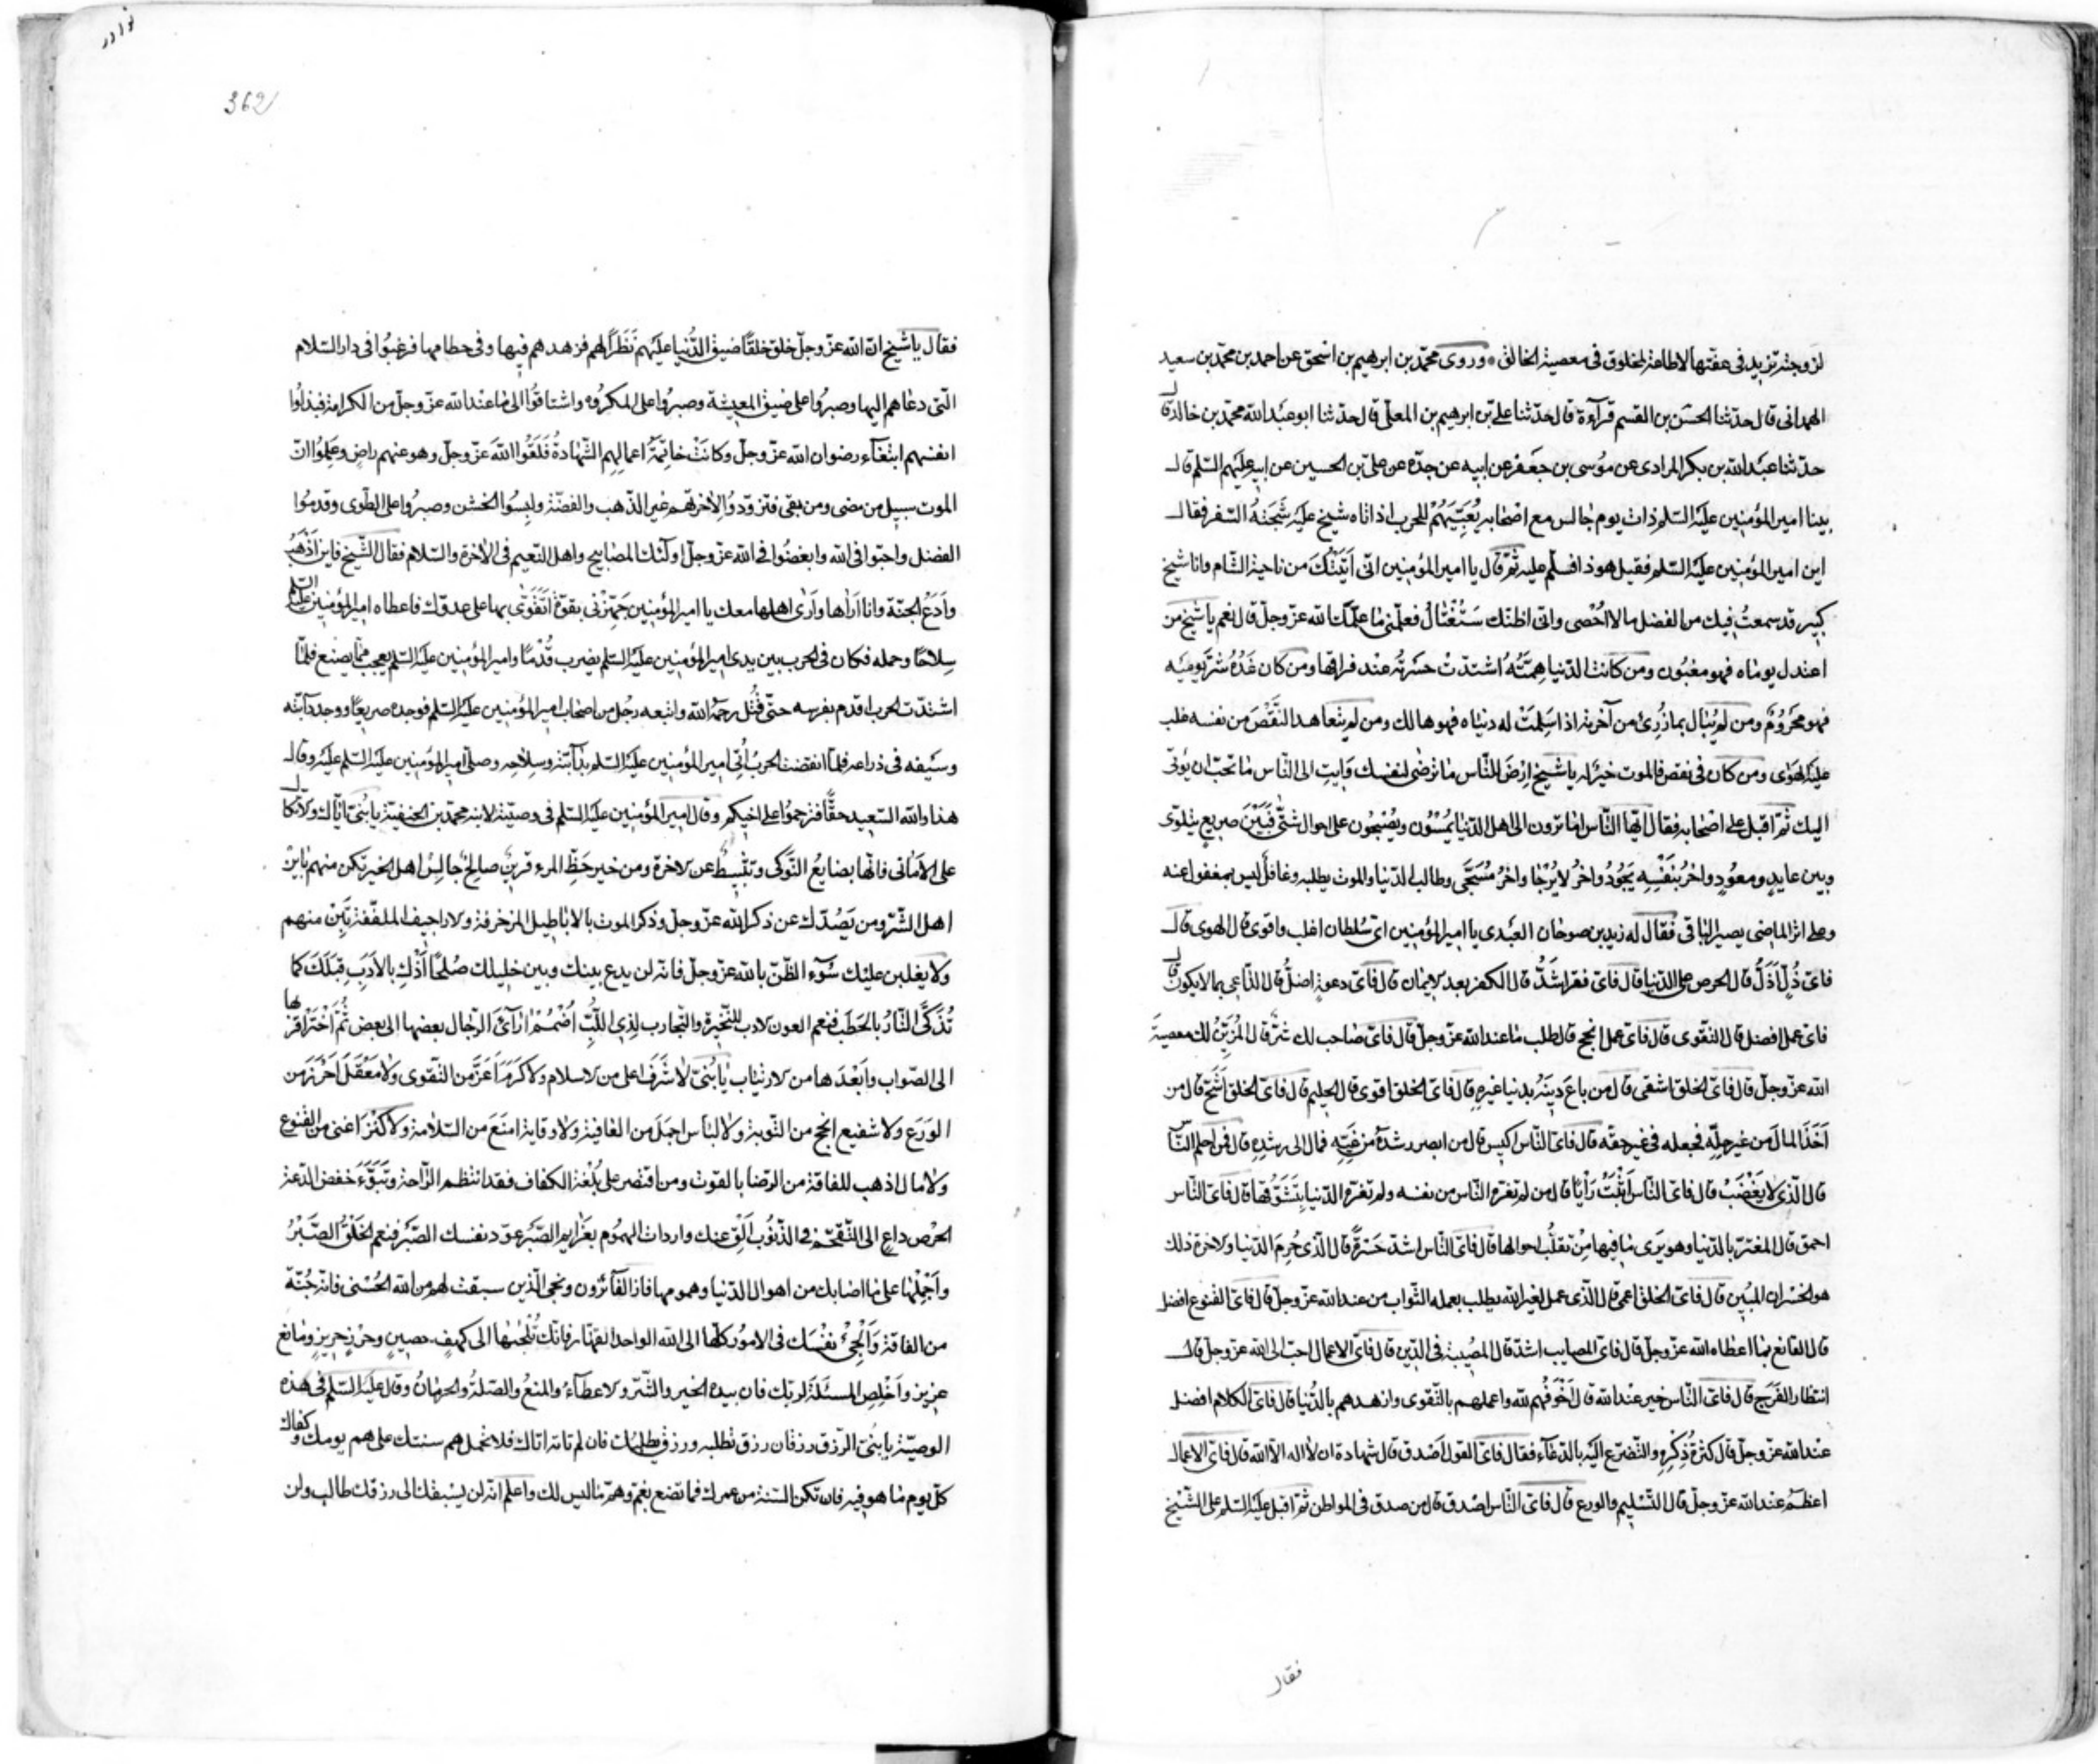 لزوجته تزيد في عفتها لا طاعة لمخلوق في معصية الخالق وروى محمّد بن ابرهيم بن اسحق عن احمد بن محمّد بن سعيد
الهمداني قال حدّثنا الحسن بن القسم قرآءة قال حدّثنا علي بن ابرهيم بن المعلّى قال حدثنا ابو عبد الله محمّد بن خالد قال
حدّثنا عبد الله بن بكر المرادي عن موسى بن جعفر عن ابيه عن جدّه عن علي بن الحسين عن ابيه عليهم السّلم قال
بينا امير المؤمنين عليه السّلم ذات يوم جالس مع اصحابه يُعَبِّيهُمْ للحرب اذ اتاه شيخ عليه شَحْبَةُ السّفر فقال
اين امير المؤمنين عليه السّلم فقيل هو ذا فسلّم عليه ثم قال يا امير المؤمنين انّي اَتَيْتُكَ من ناحية الشام وانا شيخ
كبير قد سمعتُ فيك من الفضل ما لا اُحْصي وانّي اظنّك سَتُغْتالُ فعلّمني ممّا علّمك الله عزّ وجلّ قال نعم يا شيخ من
اعتدل يوماه فهو مغبُون ومن كانت الدّنيا هِمَّتَهُ اشتدّت حسرتُه عند فراقها ومن كان غَدُهُ شرَّ يوميه
فهو محرُومٌ ومن لم يُبال بما رُزِئَ من آخرته اذا سَلِمَتْ له دنياه فهو هالك ومن لم يتعاهد النّقْصَ من نفسه غلب
عليه الهوى ومن كان في نقص فالموت خير له يا شيخ ارْضَ للنّاس ما ترضى لنفسك وَايتِ الى النّاس ما تحبّ ان يؤتى
اليك ثمّ اقبل على اصحابه فقال ايّها النّاس اما ترون الى اهل الدّنيا يُمْسُون ويُصْبِحُون على احوال شتّى فَبَيْنَ صريع يتلوّى
وبين عايد ومعُودٍ واخرُ بنَفْسِهِ يَجُودُ واخرُ لا يُرْجا واخرُ مُسَجّى وطالب الدّنيا والموت يطلبه وغافل ليس بمغفول عنه
وعلى اثر الماضي يصير الباقي فقال له زيد بن صوحان العبْدى يا امير المؤمنين ايّ سُلطان اغلب واقوى قال الهوى قال
فايّ ذُلّ اَذَلُّ قال الحرص على الدّنيا قال فايّ فقر اشَدُّ قال الكفر بعد الايمان قال فايّ دعوةٍ اضلُّ قال الدّاعي بما لا يكون قال
فايّ عمل افضل قال التقوى قال فايّ عمل انجح قال طلب ما عند الله عزّ وجلّ قال فايّ صاحب لك شرّ قال المُزَيّنُ لك معصيةَ
الله عزّ وجلّ قال فايّ الخلق اشقى قال من باعَ دِينَهُ بدنيا غيرهِ قال فايّ الخلق اقوى قال الحليم قال فايّ الخلق اَشَحّ قال من
اَخَذَ المالَ من غير حِلّهِ فجعله في غير حقّه قال فايّ النّاس اكيس قال من ابصر رشدَهُ من غَيّهِ فمال الى رشدِهِ قال فمن احلم النّاس
قال الّذي لا يَغْضَبُ قال فايّ النّاس اَثْبَتُ رَأيًا قال من لم تغرّه النّاس من نفسه ولم تغرّه الدّنيا بِتَشَوُّفها قال فايّ النّاس
احمق قال المغترّ بالدّنيا وهو يَرى ما فيها مِنْ تقلُّب احوالها قال فايّ النّاس اشدّ حَسْرةً قال الّذي حُرِمَ الدّنيا والاخرة ذلك
هو الخسْران المُبين قال فايّ الخلق اعمى قال الّذي عمل لغير الله يطلب بعمله الثّواب من عند الله عزّ وجلّ قال فايّ القنوع افضل
قال القانع بما اعطاه الله عزّ وجلّ قال فايّ المصايب اشدّ قال المصُيبة في الدّين قال فايّ الاعمال احبّ الى الله عزّ وجلّ قال
انتظار الفَرَجِ قال فايّ النّاس خير عند الله قال اَخْوَفُهم لله واعملهم بالتّقوى وازهدهم بالدُّنيا قال فايّ الكلام افضل
عند الله عزّ وجلّ قال كثرةُ ذِكْرِهِ والتّضرّع اليْه بالدعاء فقال فايّ القول اَصْدق قال شهادة ان لا اله الاّ الله قال فايّ الاعمال
اعظمُ عند الله عزّ وجلّ قال التّسليم والورع قال فايّ النّاس اصْدق قال من صدق في المواطن ثمّ اقبل عليه السّلم على الشّيخ
فقال
نوادر
362
فقال يا شيخ انّ الله عزّ وجلّ خلق خلقًا ضيق الدُّنيا عليهم نَظَرًا لهم فزهدهم فيها وفي حطامها فرغبُوا في دار السّلام
الّتي دعاهم اليها وصبرُوا على ضيق المعيشة وصبرُوا على المكروه واشتاقوُا الى ما عند الله عزّ وجلّ من الكرامة فبذلُوا
انفسهم ابتغآء رضوان الله عزّ وجلّ وكانتْ خاتِمَةُ اعمالِهِم الشّهادةُ فَلَقُوا اللهَ عزّ وجلّ وهو عنهم راضٍ وعَلِمُوا انّ
الموت سبيل من مضى ومن بقى فتزوّدوُا لاِخرتهم غير الذّهب والفضّة ولبِسُوا الخشن وصبرُوا على الطّوى وقدمُوا
الفضل واحبّوا في الله وابغضُوا في الله عزّ وجلّ اولئك المصابيح واهل النّعيم في الاخرة والسّلام فقال الشّيخ فاين اَذْهَبُ
واَدَعُ الجنّة وانا اَراها واَرى اهلها معك يا امير المؤمنين جَهِّزْني بقوّة اَتَقَوّى بها على عدوّك فاعطاه امير المؤمنين عليه السّلم
سِلاحًا وحمله فكان في الحرب بين يدى امير المؤمنين عليه السّلم يضرب قُدْمًا وامير المؤمنين عليه السّلم يعجب ممّا يصنع فلمّا
اشتدّت الحرب اقدم بفرسه حتّى قُتل رحمهُ الله واتبعه رجُل من اصحاب امير المؤمنين عليه السّلم فوجده صريعًا ووجد دآبّته
وسَيْفه في ذراعه فلمّا انقضت الحربُ اُتِيَ امير المؤمنين عليه السّلم بدآبّته وسِلاحِه وصلّى امير المؤمنين عليه السّلم عليه وقال
هذا والله السّعيد حقًّا فترحموُا على اخيكم وقال امير المؤمنين عليه السّلم في وصيّته لابنه محمّد بن الحنفية يا بُنيّ ايّاك والاتّكال
على الاَماني فانّها بضايعُ النَّوكى وتثبيطٌ عن الاخرة ومن خير حَظِّ المرء قرينٌ صالحٌ جالِسْ اهل الخير تكن منهم بايِنْ
اهل الشّرّ ومن يَصُدّك عن ذكر الله عزّ وجلّ وذكر الموت بالاباطيل المزخرفة والاراجيف الملفّقة تَبِنْ منهم
ولا يغلبن عليْك سُوء الظّنّ بالله عزّ وجلّ فانه لن يدع بينك وبين خليلك صُلحًا اَذْكِ بالاَدَبِ قَلبَكَ كما
تُذَكَّى النّارُ بالحَطَب فنعم العون الادب للنّحِيْزة والتّجارب لِذِى اللُّبّ اضْمُمْ ارآءَ الرّجال بعضها الى بعض ثُمَّ اخْتَرْ اَقربها
الى الصّواب واَبْعَدَها من الارتياب يا بُنيّ لا شَرَفَ اعلى من الاسلام ولا كَرَمَ اَعَزّ من التّقوى ولا مَعْقَلَ اَحْرَزَ من
الوَرَع ولا شفيع انجح من التّوبة ولا لباس اجمَلَ من العافية ولا وقاية امنَعَ من السّلامة ولا كَنْزَ اغنى من القُنوع
ولا مال اذهب للفاقة من الرّضا بالقوت ومن اقتصر على بُلْغة الكفاف فقد انتظم الرّاحة وتَبَوَّءَ خفض الدّعة
الحرْص داعٍ الى التّقحّم في الذّنُوب اَلْقِ عنك واردات الهموُم بعَزايم الصّبر عوّد نفسك الصّبرَ فنعم الخلقُ الصّبْرُ
واَحْمِلْها على ما اصابك من اهوال الدّنيا وهمومها فاز الفآئزون ونجى الّذين سبقت لهم من الله الحُسْنى فانّه جُنّة
من الفاقة وَاَلْجِئْ نفْسَك في الامور كلّها الى الله الواحد القهّار فانّك تُلْجِئُها الى كهفٍ حصينٍ وحِرْزٍ حريزٍ ومانع
عزيز واَخْلِصِ المسئلَةَ لربّك فان بيده الخير والشّرّ والاعطآءُ والمنعُ والصّلةُ والحرمانُ وقال عليه السّلم في هذه
الوصيّة يا بُنيّ الرّزق رزقان رزق تطلبه ورزق يطلبُك فان لم تاته اتاك فلا تحمل هم سنتك على هم يومك وكفاك
كلّ يوم ما هو فيه فان تكن السّنة من عمرك فما تصنع بغمّ وهمّ ما ليس لك واعلم انّه لن يسْبقك الى رزقك طالب ولن